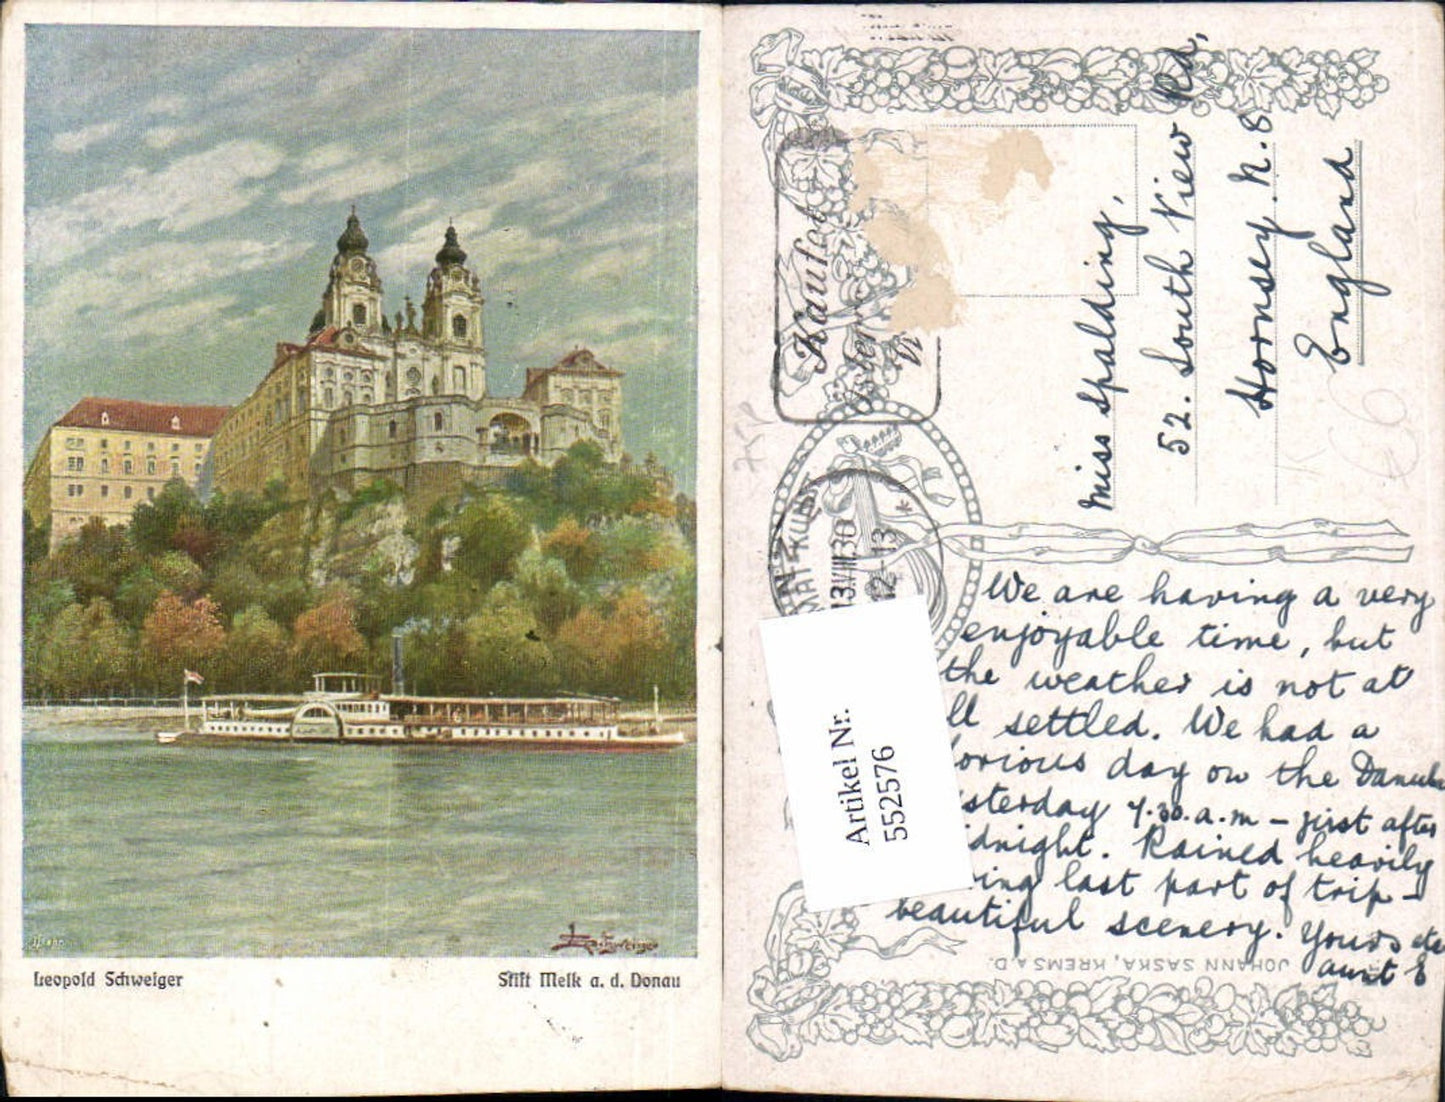 Leopold Schweiger
Stift Melk a. d. Donau
Miss Spalding,
52. South View Rd,
Hornsey. N. 8
England
13.VIII.30
12-13
*
We are having a very
enjoyable time, but
the weather is not at
ll settled. We had a
lorious day on the Danub
sterday 7.30.a.m - just after
idnight. Rained heavily
ing last part of trip -
beautiful scenery. Yours etc
aunt E
JOHANN SASKA, KREMS A D.
Artikel Nr.
552576